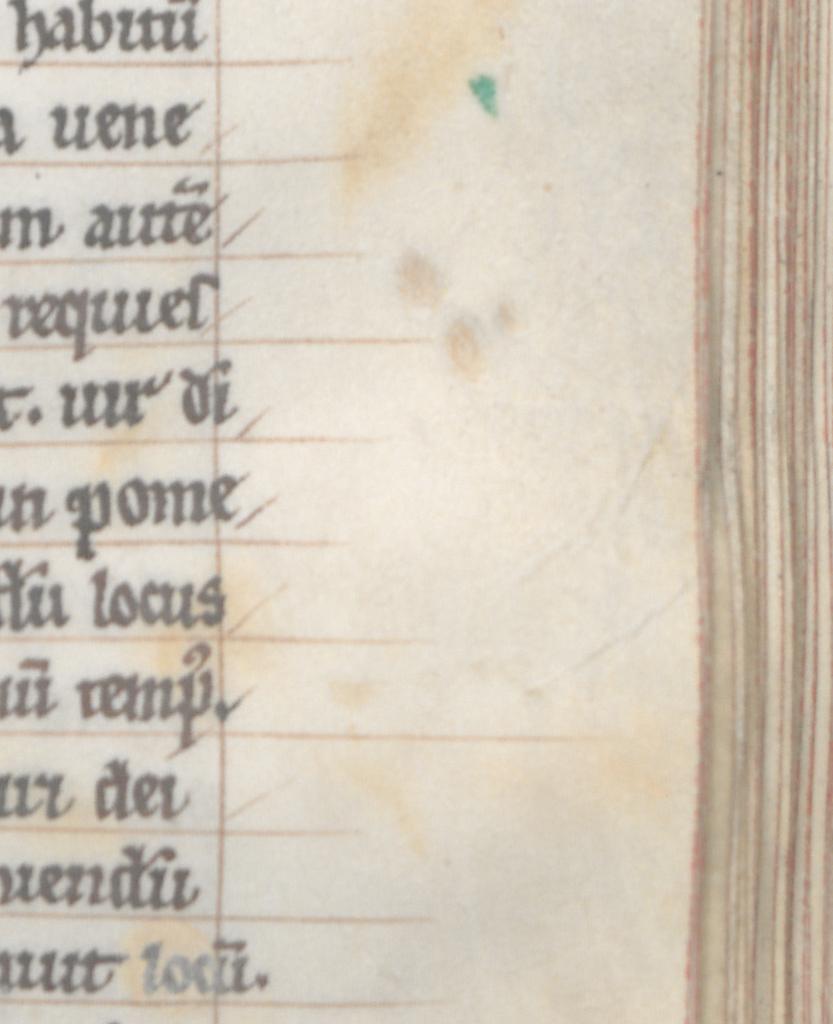 habitū
a uene
m autē
requies
t. uir dī
in pome
dū locus
uū temp᷒.
ur dei
uendū
uut locū.